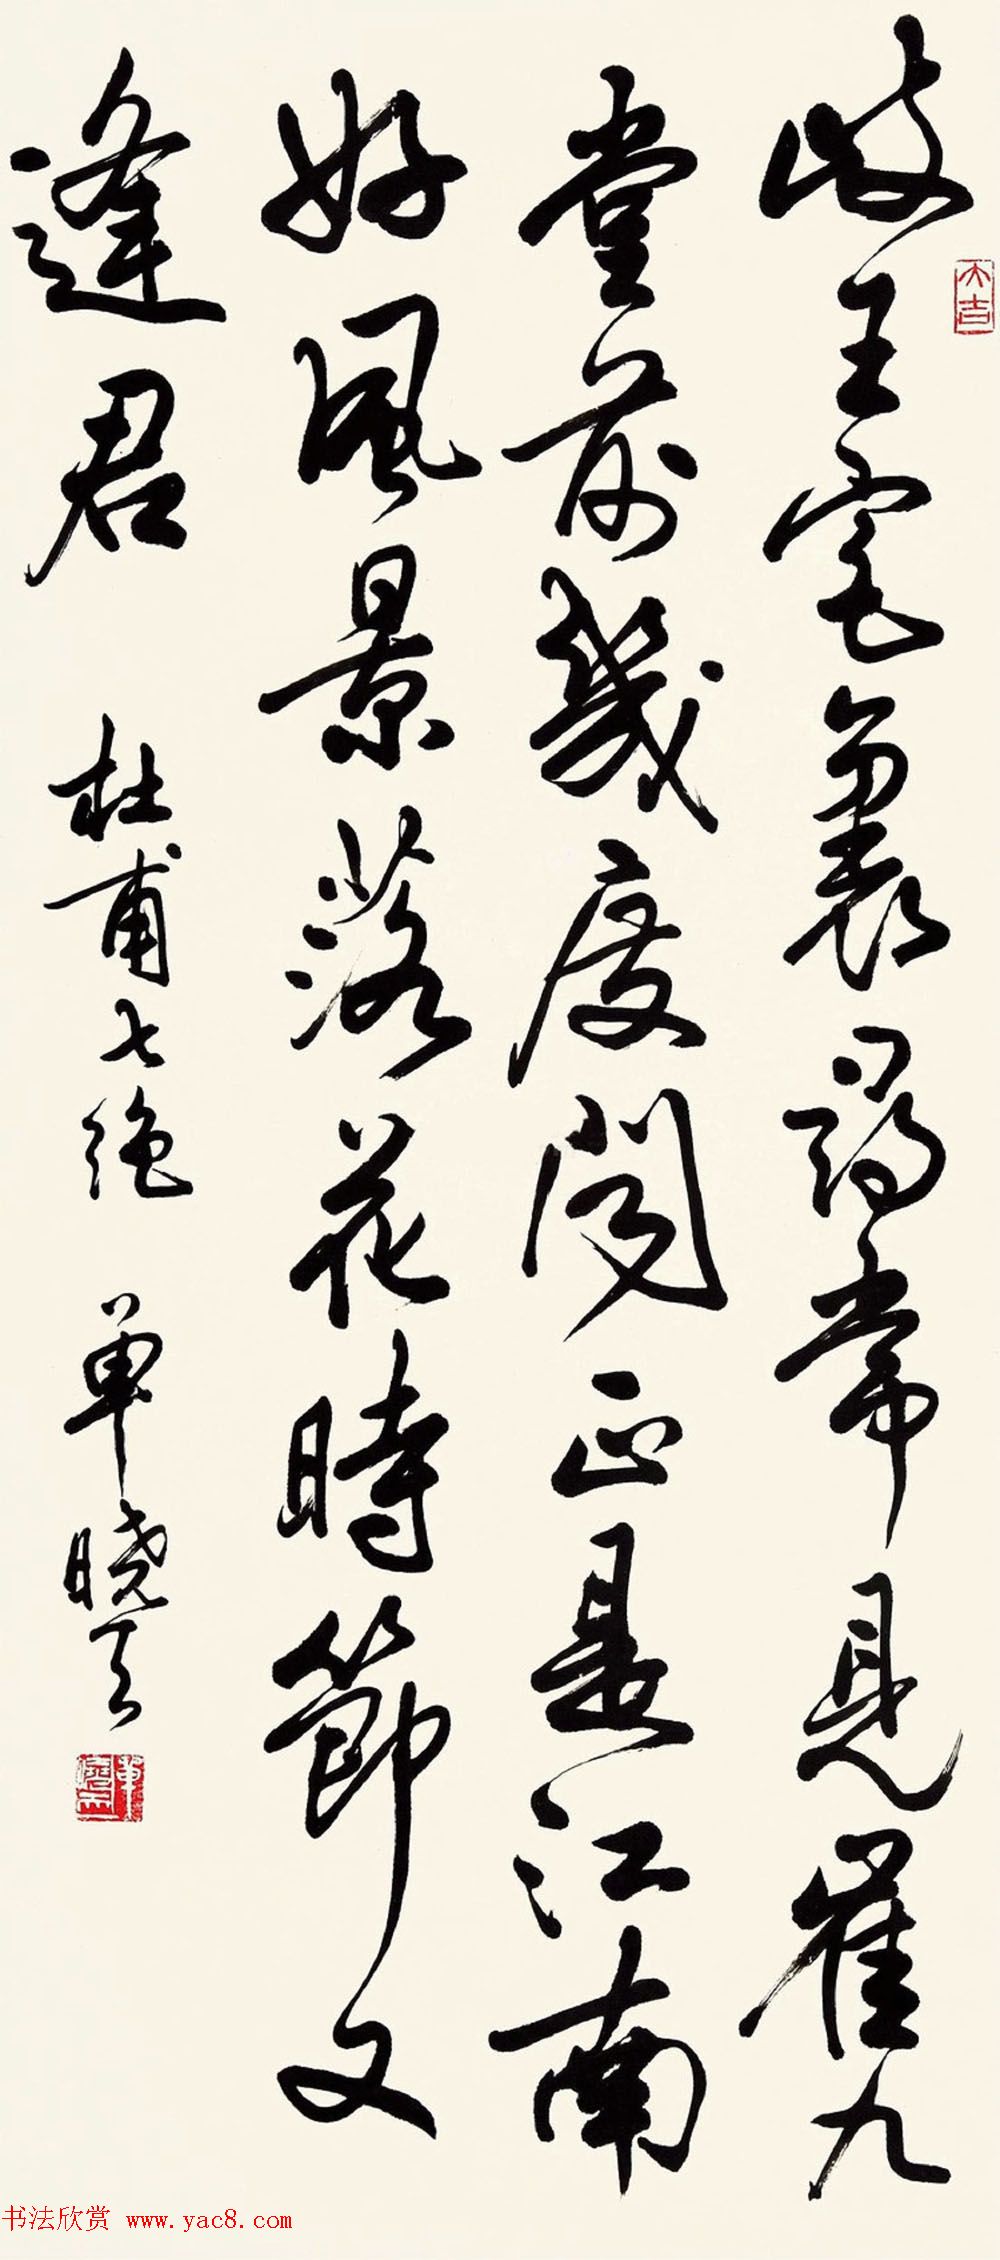 岐王宅裏尋常見崔九
堂前幾度聞正是江南
好風景落花時節又
逢君
杜甫七绝 单晓天
大吉
单曉天
书法欣赏 www.yac8.com